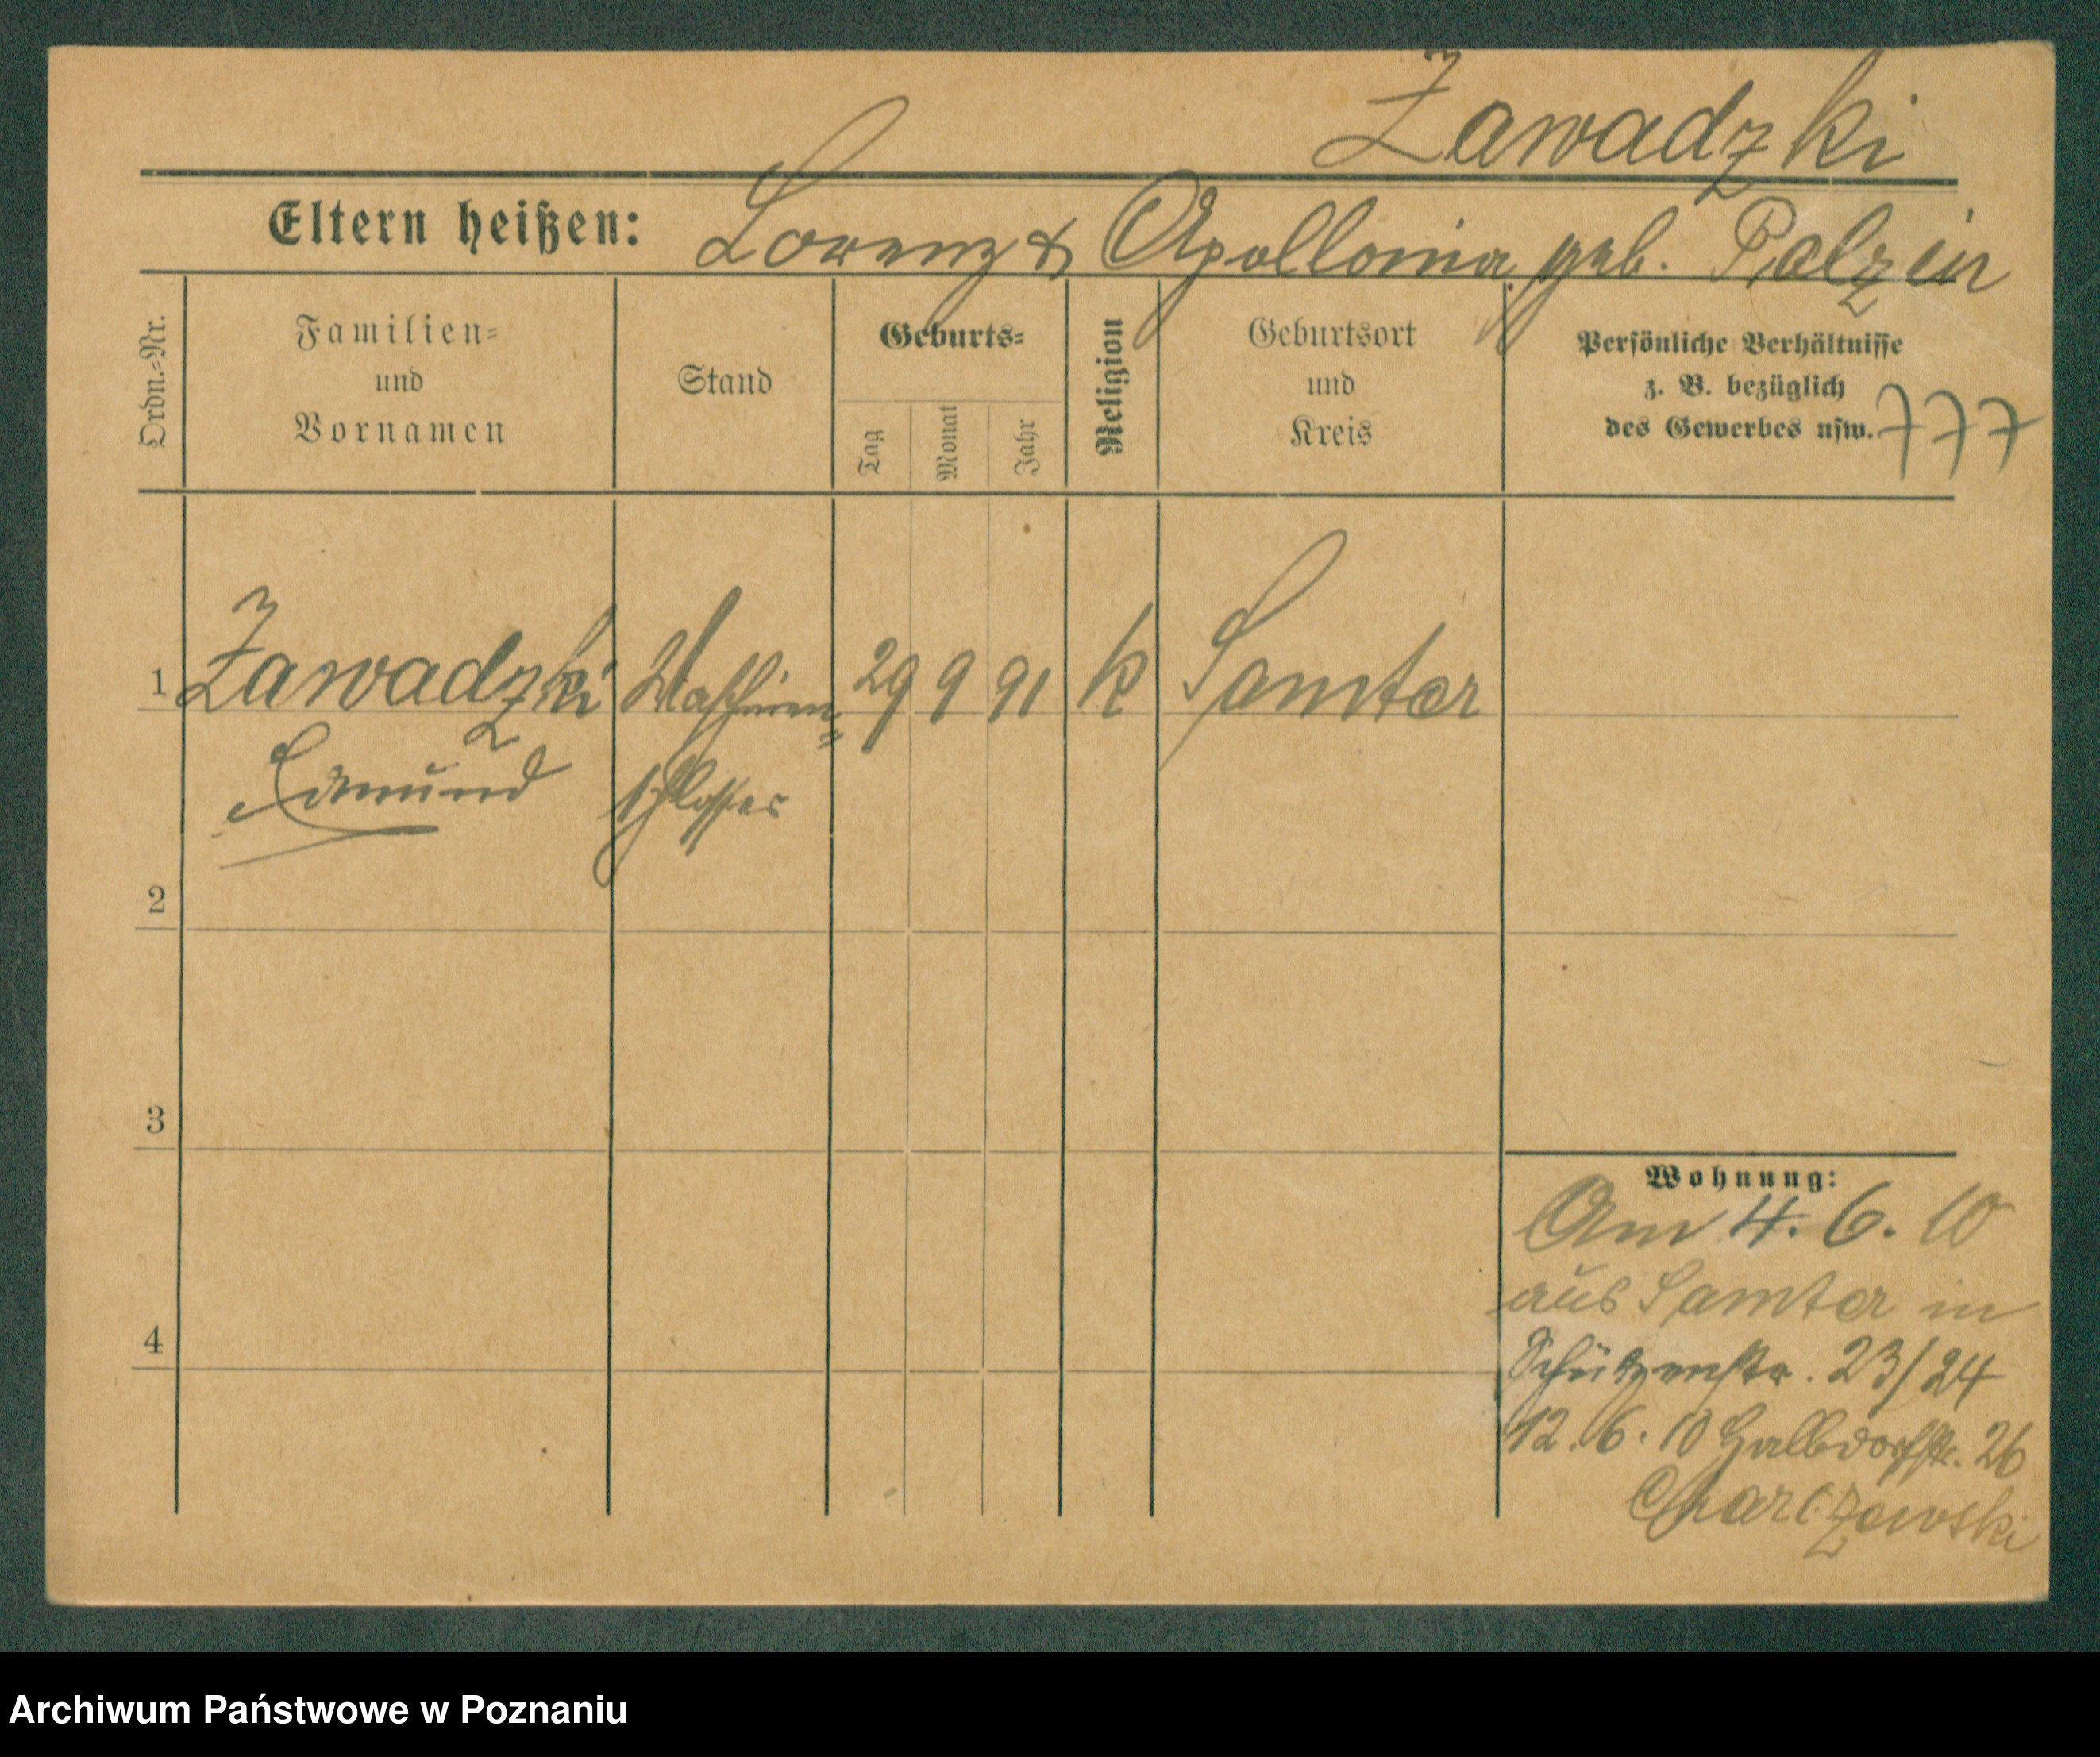 Zawadzki
Eltern heißen: Lorenz & Apollonia geb. Palzin
Ordn.=Nr.
Familien=
und
Vornamen
Stand
Geburts=
Tag
Monat
Jahr
Religion
Geburtsort
und
Kreis
Persönliche Verhältnisse
z. B. bezüglich
des Gewerbes usw. 777
1 Zawadzki Maschinen= 29 9 91 k Samter
Edmund schlosser
2
3
4
Wohnung:
Am 4. 6. 10
aus Samter in
Schützenstr. 23/24
12. 6. 10 Halbdorfstr. 26
Charczewski
Archiwum Państwowe w Poznaniu